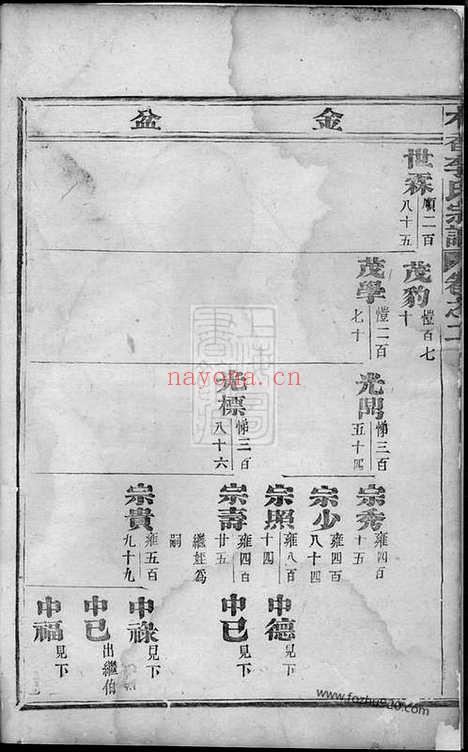 李氏宗譜
卷之二
金盆
世霖
順二百
八十五
茂豹
愷百七
十
茂學
愷二百
七十
光門
悌三百
五十四
光標
悌三百
八十六
宗秀
雍四百
十五
宗少
雍四百
八十四
宗照
雍八百
十四
宗壽
雍四百
廿五
繼姪為
嗣
宗貴
雍五百
九十九
中德
見下
中已
見下
中祿
見下
中已
出繼伯
中福
見下
nayona.cn
www.fozhu920.com